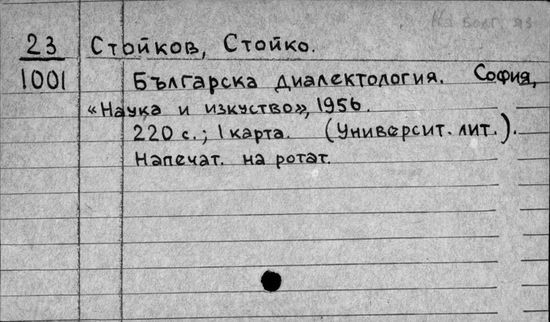 На болг. яз
23 Стойков, Стойко.
1001 Българска диалектология. София,
«Наука и изкуство», 1956.
220 с.; 1 карта. (Университ. лит.).
Напечат. на ротат.